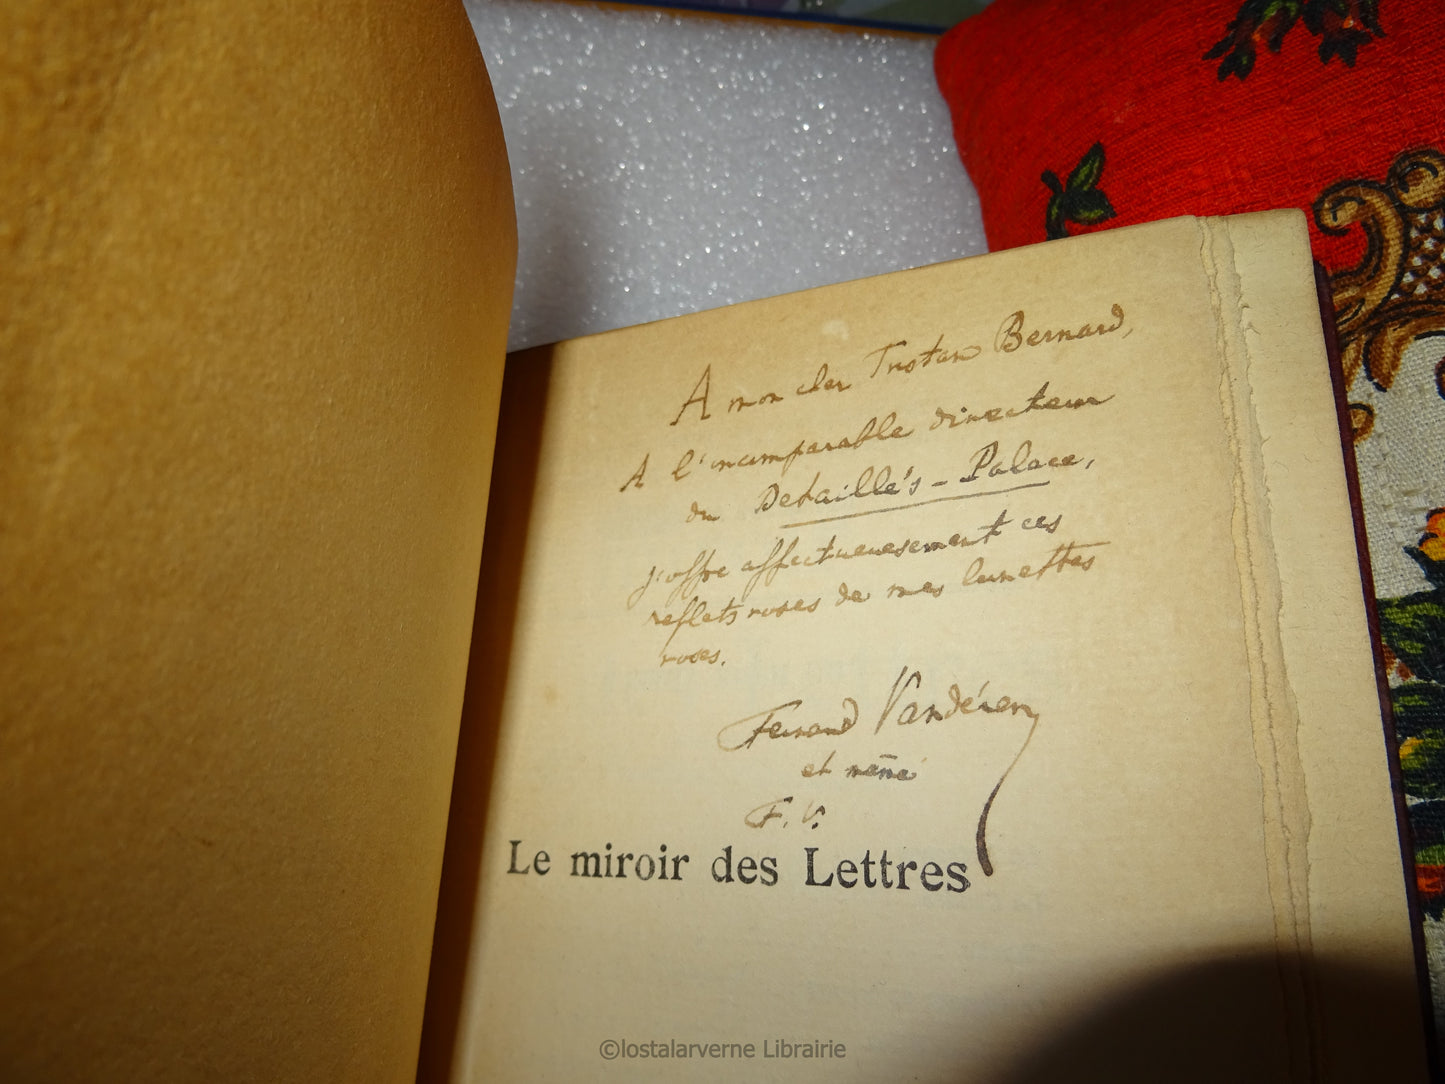 A mon cher Tristan Bernard,
A l'incomparable directeur
du Detaillé's-Palace,
j'offre affectueusement ces
reflets roses de mes lunettes
roses.
Fernand Vandérem
et
F. V.
Le miroir des Lettres
©lostalarverne Librairie